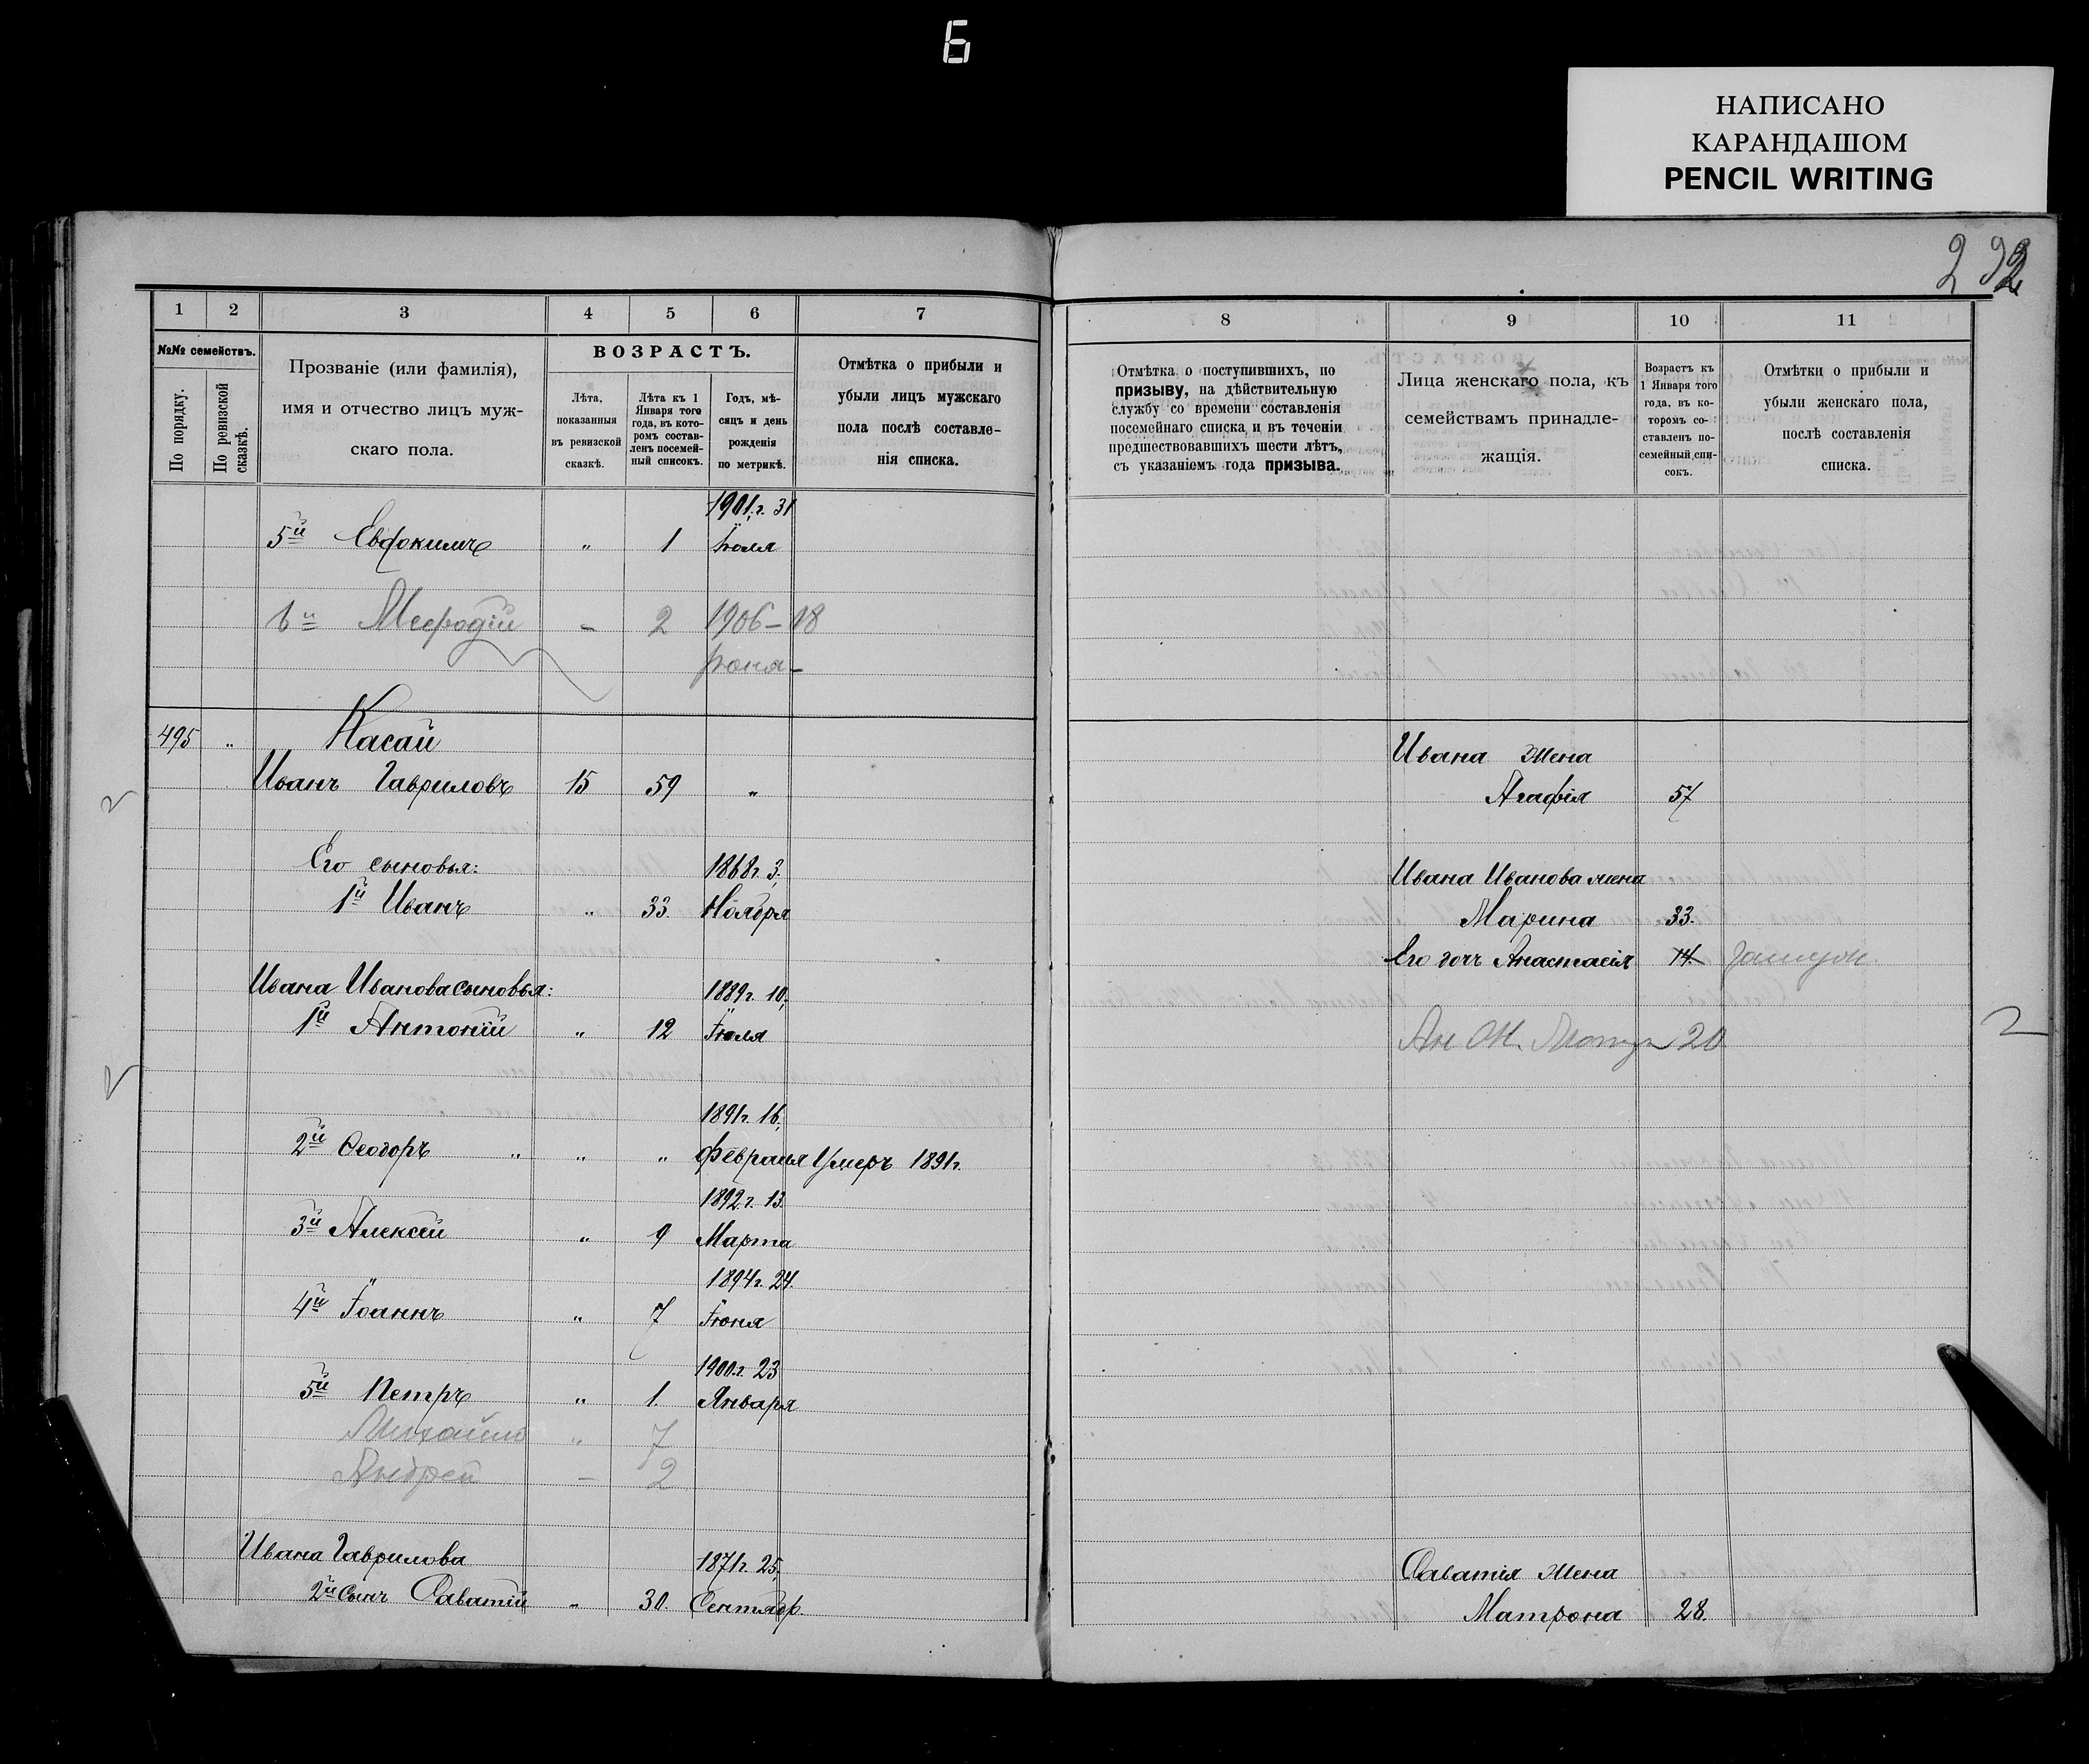 6
НАПИСАНО
КАРАНДАШОМ
PENCIL WRITING
292
1 2 3 4 5 6 7
№№ семействъ.
По порядку.
По ревизской сказкѣ.
Прозваніе (или фамилія),
имя и отчество лицъ муж-
скаго пола.
ВОЗРАСТЪ.
Лѣта,
показанныя
въ ревизской
сказкѣ.
Лѣта къ 1
Января того
года, въ кото-
ромъ состав-
ленъ посемей-
ный списокъ.
Годъ, мѣ-
сяцъ и день
рожденія
по метрикѣ.
Отмѣтка о прибыли и
убыли лицъ мужскаго
пола послѣ составле-
нія списка.
8 9 10 11
Отмѣтка о поступившихъ, по
призыву, на дѣйствительную
службу со времени составленія
посемейнаго списка и въ теченіи
предшествовавшихъ шести лѣтъ,
съ указаніемъ года призыва.
Лица женскаго пола, къ
семействамъ принадле-
жащія.
Возрастъ къ
1 Января того
года, въ ко-
торомъ со-
ставленъ по-
семейный спи-
сокъ.
Отмѣтки о прибыли и
убыли женскаго пола,
послѣ составленія
списка.
1901 г. 31
5й Евфокимъ „ 1 Іюля
6й Мефодій – 2 1906 – 18
Іюня –
495 „ Касай
Иванъ Гавриловъ 15 59 „
Его сыновья: 1868 г. 3,
1й Иванъ „ 33. Ноября
Ивана Иванова сыновья: 1889 г. 10,
1й Антоній „ 12 Іюля
1891 г. 16,
2й Ѳеодоръ „ „ „ Февраля Умеръ 1891 г.
1892 г. 13.
3й Алексѣй „ 9 Марта
1894 г. 24.
4й Іоаннъ „ 7 Іюня
1900 г. 23
5й Петръ „ 1. Января
Михаилъ „ 7
Андрей – 2
Ивана Гаврилова 1871 г. 25,
2й сынъ Саватій „ 30. Сентябр.
Ивана жена
Агафія 57
Ивана Иванова жена
Марина 33.
Его дочь Анастасія 14. замуж.
Ан 20
2
Саватія жена
Матрона 28.